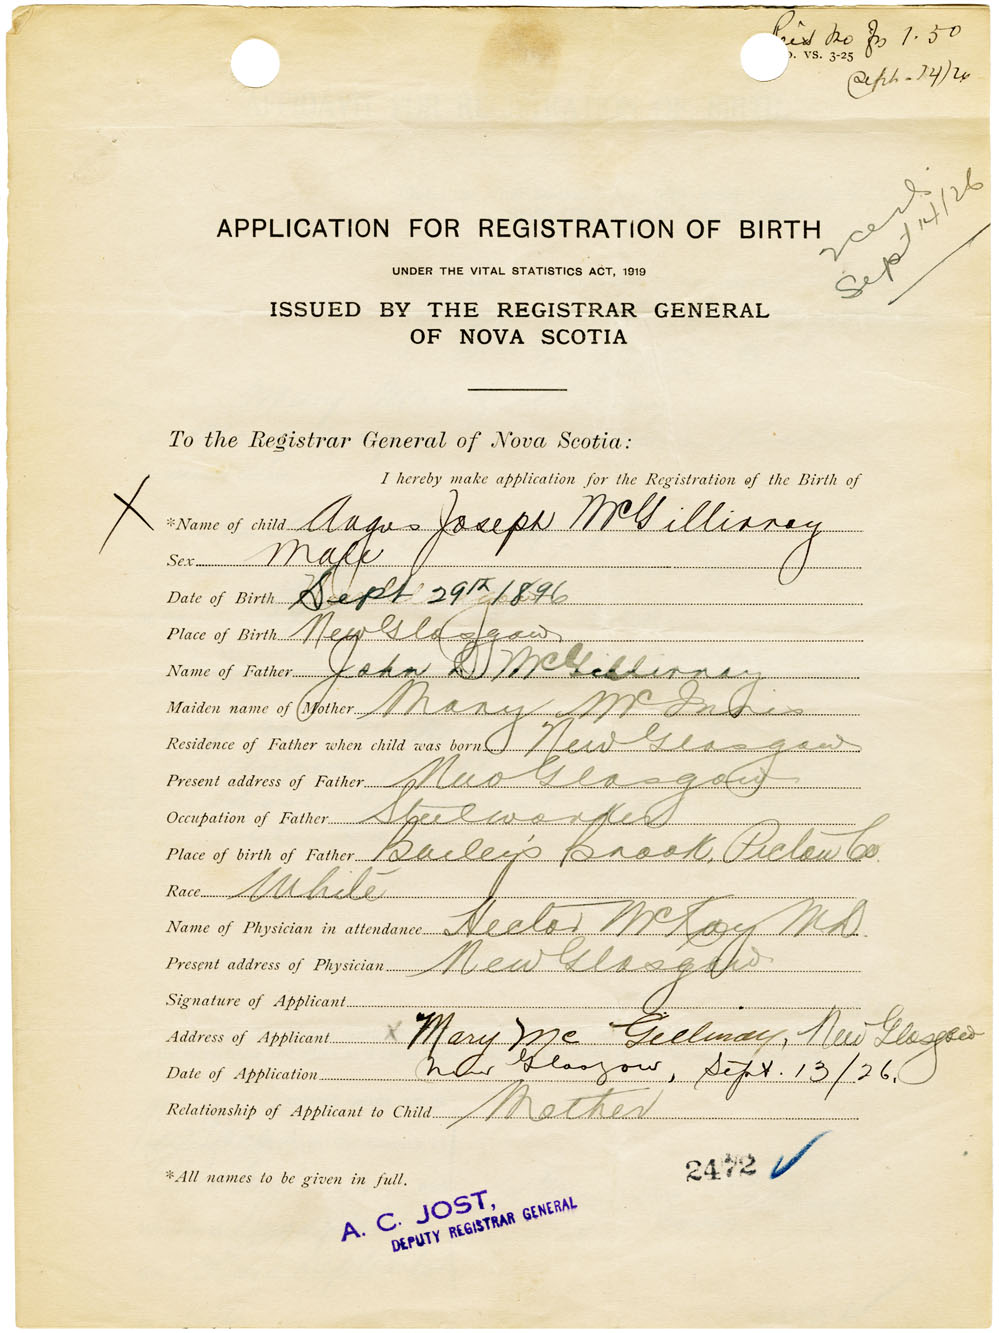 7.50
D. VS. 3-25
Sept-14/26
Sept 14/26
APPLICATION FOR REGISTRATION OF BIRTH
UNDER THE VITAL STATISTICS ACT, 1919
ISSUED BY THE REGISTRAR GENERAL
OF NOVA SCOTIA
To the Registrar General of Nova Scotia:
I hereby make application for the Registration of the Birth of
X
*Name of child Angus Joseph McGillivray
Sex Male
Date of Birth Sept 29th 1896
Place of Birth New Glasgow
Name of Father John D McGillivray
Maiden name of Mother Mary McInnis
Residence of Father when child was born New Glasgow
Present address of Father New Glasgow
Occupation of Father Steelworker
Place of birth of Father Bailey's Brook, Pictou Co.
Race White
Name of Physician in attendance Hector McKay M.D.
Present address of Physician New Glasgow
Signature of Applicant
Address of Applicant x Mary Mc Gillivray, New Glasgow
Date of Application New Glasgow, Sept. 13/26.
Relationship of Applicant to Child Mother
*All names to be given in full.
2472
A. C. JOST,
DEPUTY REGISTRAR GENERAL